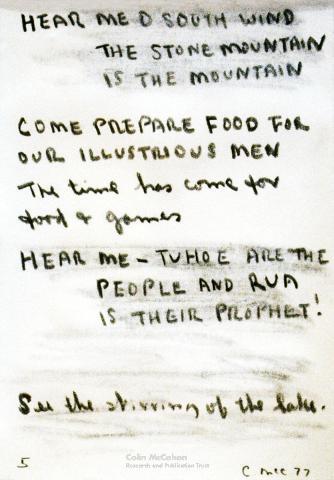 HEAR ME O SOUTH WIND
THE STONE MOUNTAIN
IS THE MOUNTAIN
COME PREPARE FOOD FOR
OUR ILLUSTRIOUS MEN
The time has come for
food & games
HEAR ME – TUHOE ARE THE
PEOPLE AND RUA
IS THEIR PROPHET!
See the stirring of the lake.
Colin McCahon
Research and Publication Trust
5
C McC 77